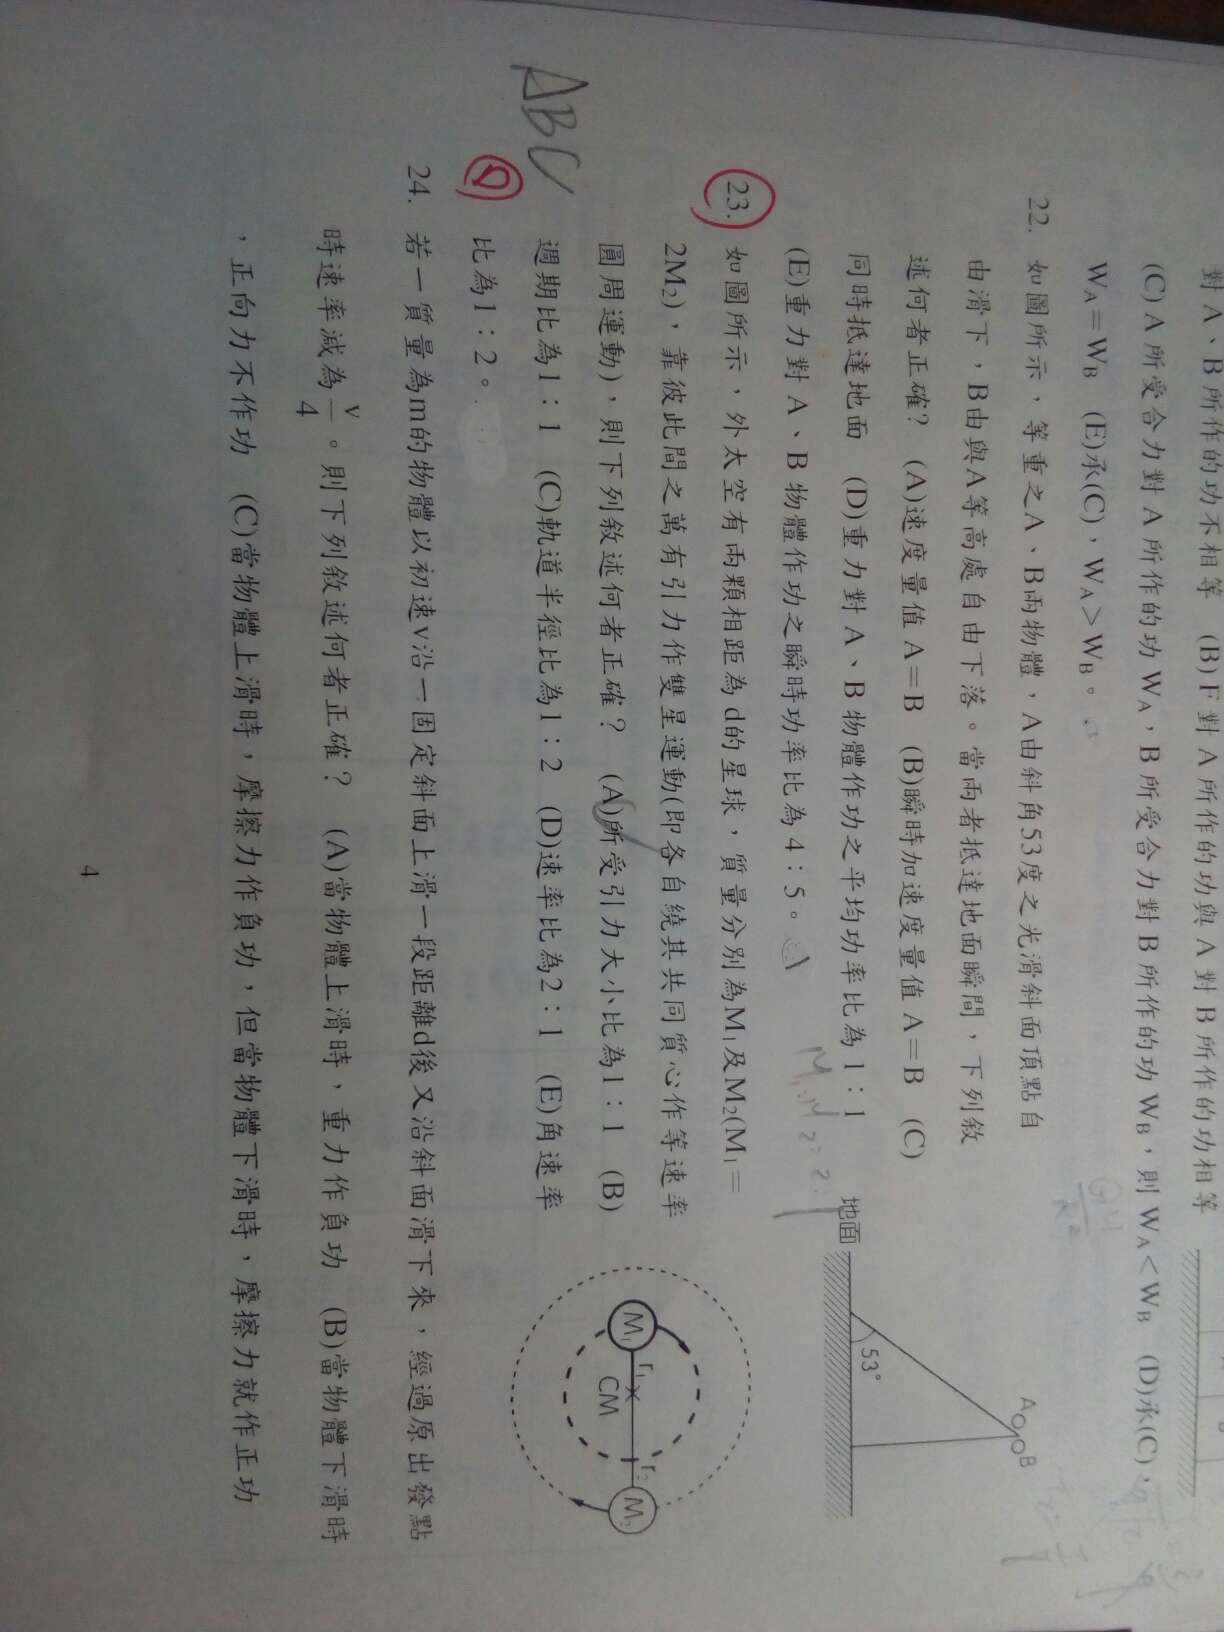 對A、B所作的功不相等 (B)F對A所作的功與A對B所作的功相等
(C)A所受合力對A所作的功WA，B所受合力對B所作的功WB，則WA＜WB (D)承(C)，
WA＝WB (E)承(C)，WA＞WB。
22. 如圖所示，等重之A、B兩物體，A由斜角53度之光滑斜面頂點自
由滑下，B由與A等高處自由下落。當兩者抵達地面瞬間，下列敘
述何者正確？ (A)速度量值A＝B (B)瞬時加速度量值A＝B (C)
同時抵達地面 (D)重力對A、B物體作功之平均功率比為1：1
(E)重力對A、B物體作功之瞬時功率比為4：5。
A
B
53°
地面
M1:M2=2:1
23. 如圖所示，外太空有兩顆相距為d的星球，質量分別為M1及M2(M1＝
2M2)，靠彼此間之萬有引力作雙星運動(即各自繞其共同質心作等速率
圓周運動)，則下列敘述何者正確？ (A)所受引力大小比為1：1 (B)
週期比為1：1 (C)軌道半徑比為1：2 (D)速率比為2：1 (E)角速率
比為1：2。
ABC
M1
r1
CM
r2
M2
24. 若一質量為m的物體以初速v沿一固定斜面上滑一段距離d後又沿斜面滑下來，經過原出發點
時速率減為v/4。則下列敘述何者正確？ (A)當物體上滑時，重力作負功 (B)當物體下滑時
，正向力不作功 (C)當物體上滑時，摩擦力作負功，但當物體下滑時，摩擦力就作正功
4